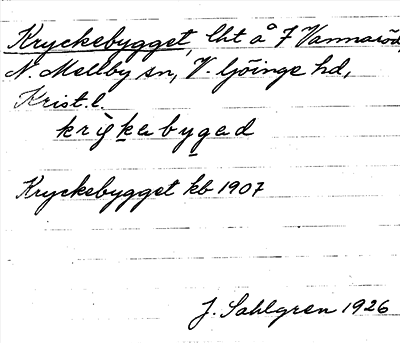 Kryckebygget, lht å 7 Vannaröd,
N. Mellby sn, V. Göinge hd,
Krist. l.
Kryckebygget kb 1907
J. Sahlgren 1926